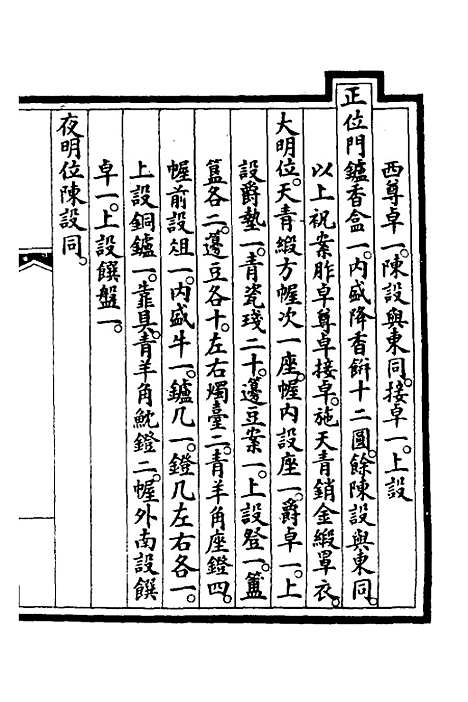 西尊卓一。陳設與東同。接卓一。上設
正位門鑪香盒一。内盛降香餅十二圓。餘陳設與東同。
以上祝案胙卓尊卓接卓。施天青銷金緞罩衣。
大明位。天青緞方幄次一座。幄内設座一。爵卓一。上
設爵墊一。青瓷琖二十。籩豆案一。上設登一。簠
簋各二。籩豆各十。左右燭臺二。青羊角座鐙四。
幄前設俎一。内盛牛一。鑪几一。鐙几左右各一。
上設銅鑪一。靠具。青羊角魫鐙二。幄外南設饌
卓一。上設饌盤一。
夜明位陳設同。